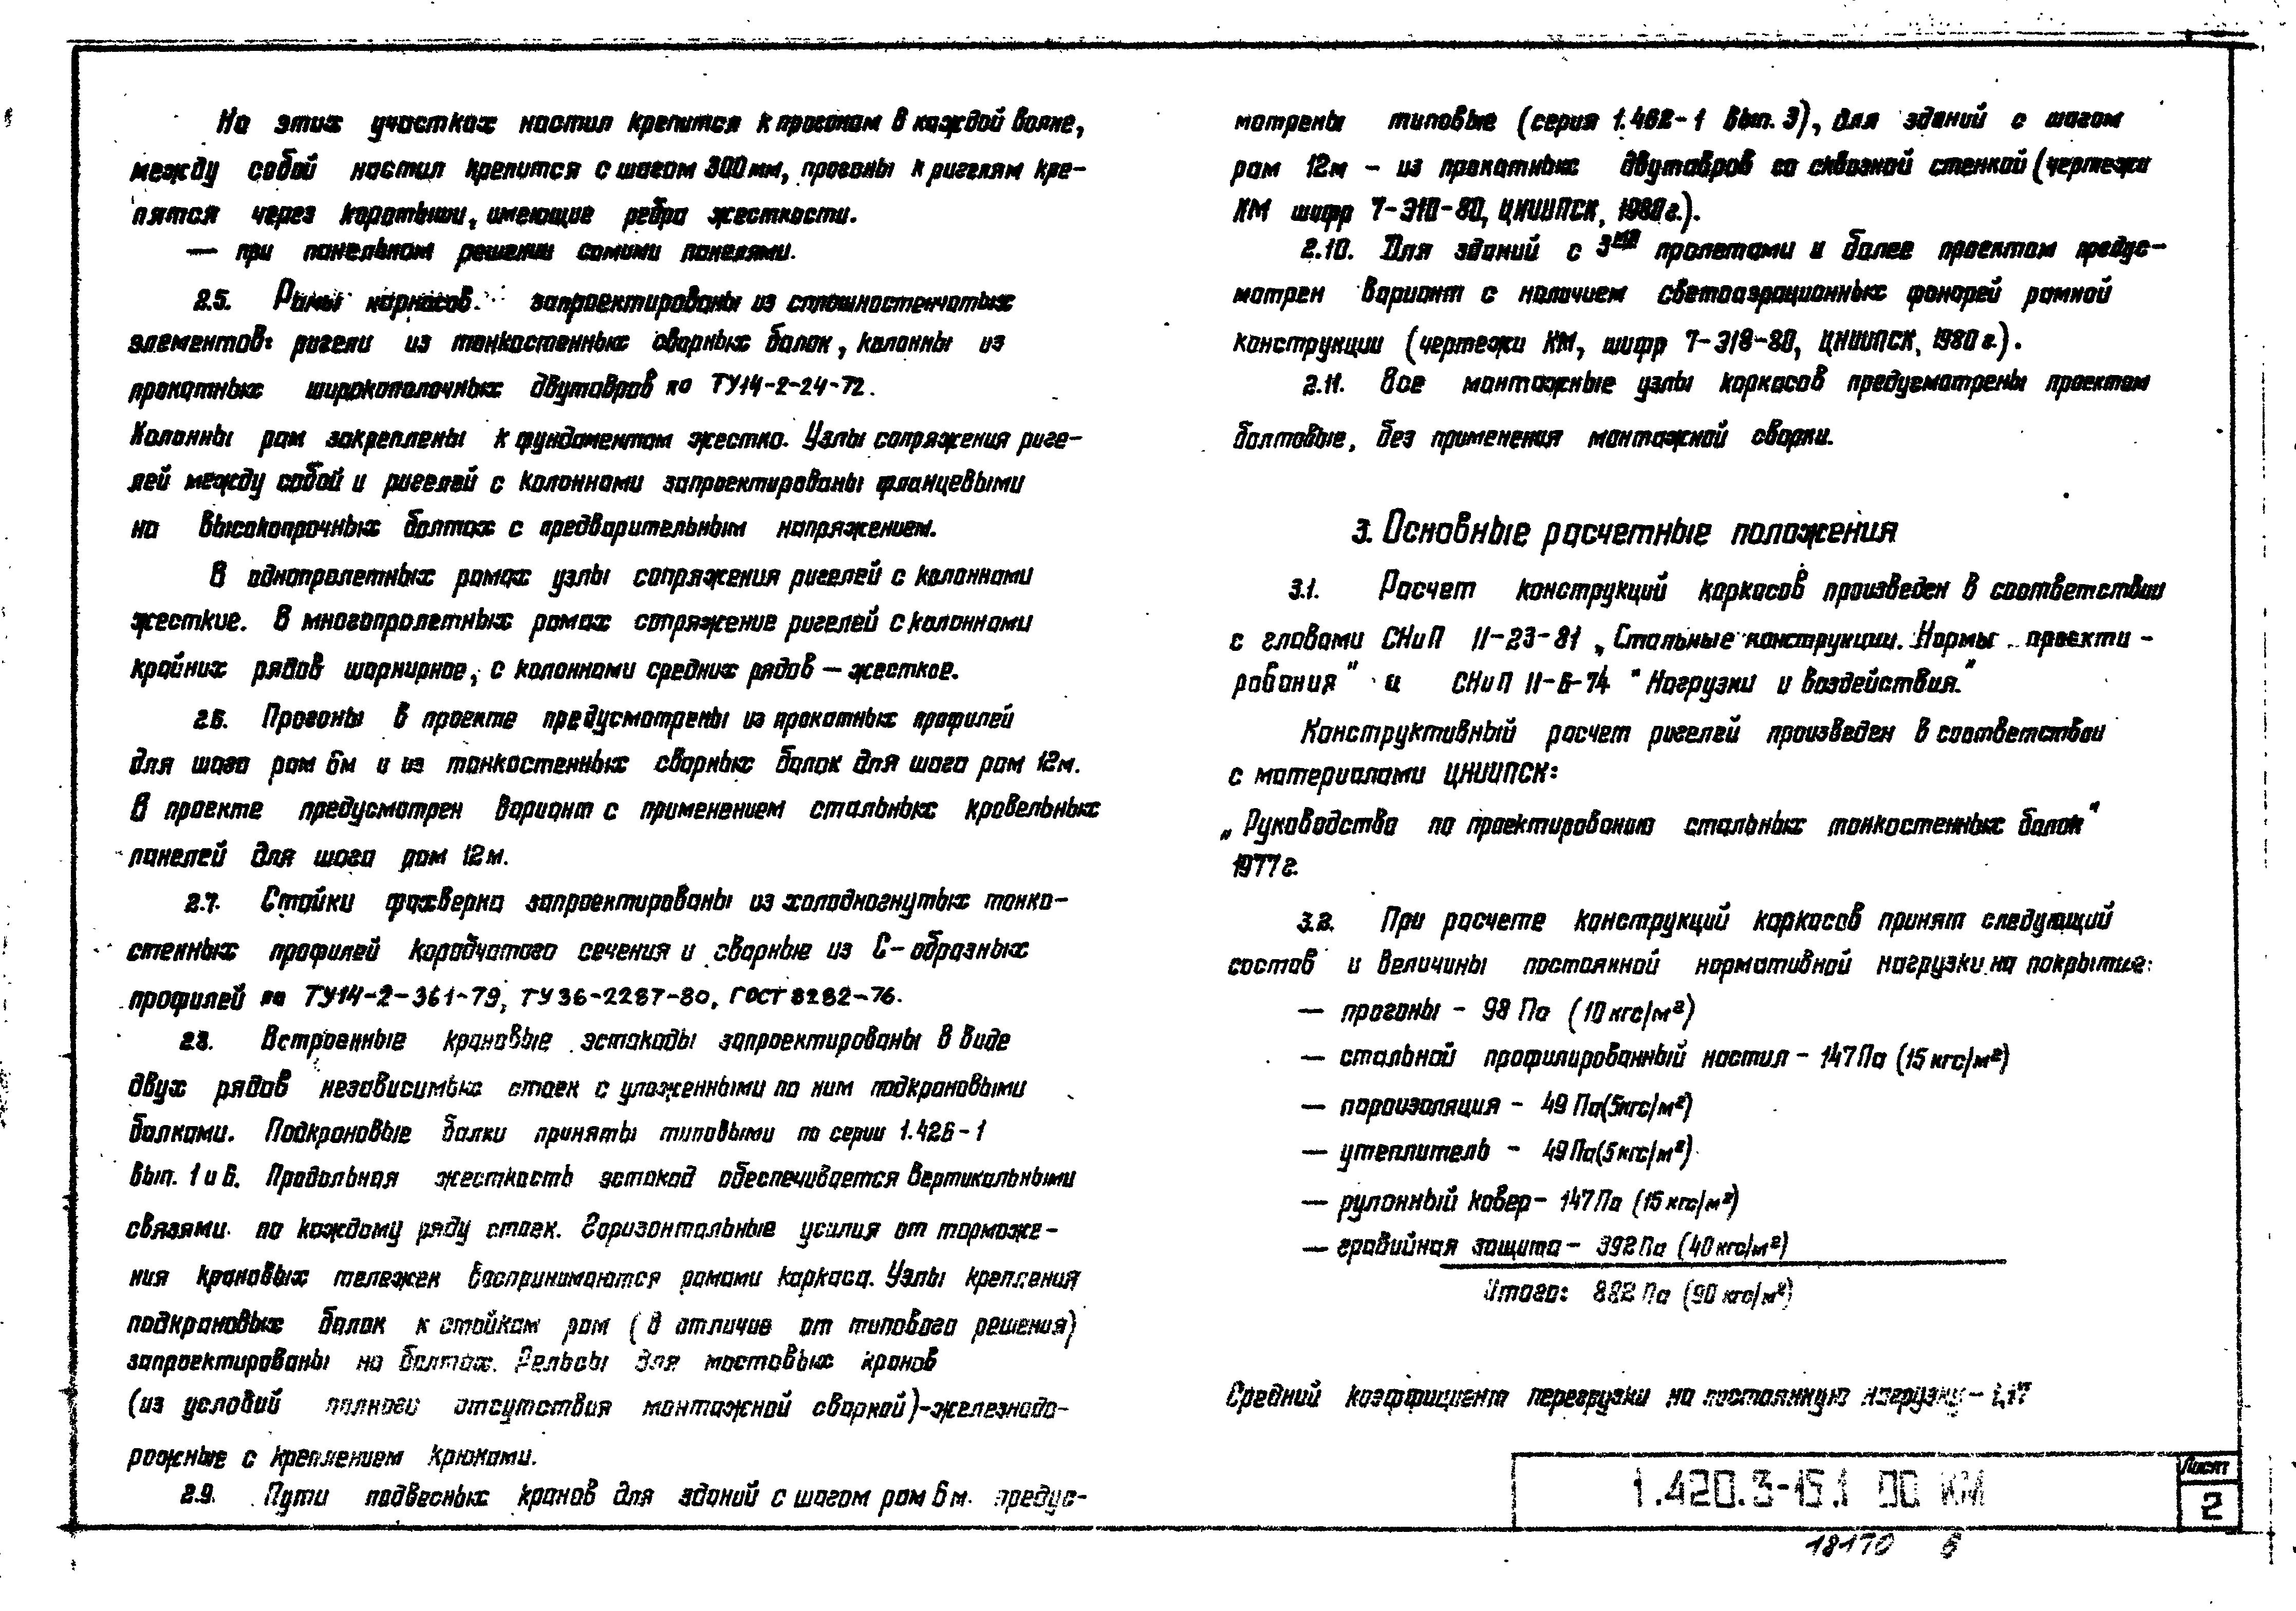 На этих участках настил крепится к прогонам в каждой волне,
между собой настил крепится с шагом 300 мм, прогоны к ригелям кре-
пятся через коротыши, имеющие ребра жесткости.
— при панельном решении самими панелями.
2.5. Рамы каркасов запроектированы из сплошностенчатых
элементов: ригели из тонкостенных сварных балок, колонны из
прокатных широкополочных двутавров по ТУ14-2-24-72.
Колонны рам закреплены к фундаментам жестко. Узлы сопряжения риге-
лей между собой и ригелей с колоннами запроектированы фланцевыми
на высокопрочных болтах с предварительным напряжением.
В однопролетных рамах узлы сопряжения ригелей с колоннами
жесткие. В многопролетных рамах сопряжение ригелей с колоннами
крайних рядов шарнирное, с колоннами средних рядов — жесткое.
2.6. Прогоны в проекте предусмотрены из прокатных профилей
для шага рам 6м и из тонкостенных сварных балок для шага рам 12м.
В проекте предусмотрен вариант с применением стальных кровельных
панелей для шага рам 12м.
2.7. Стойки фахверка запроектированы из холодногнутых тонко-
стенных профилей коробчатого сечения и сварные из С-образных
профилей по ТУ14-2-361-79, ТУ36-2287-80, ГОСТ 8282-76.
2.8. Встроенные крановые эстакады запроектированы в виде
двух рядов независимых стоек с уложенными по ним подкрановыми
балками. Подкрановые балки приняты типовыми по серии 1.426-1
вып. 1 и 6. Продольная жесткость эстакад обеспечивается вертикальными
связями по каждому ряду стоек. Горизонтальные усилия от торможе-
ния крановых тележек воспринимаются рамами каркаса. Узлы крепления
подкрановых балок к стойкам рам (в отличие от типового решения)
запроектированы на болтах. Рельсы для мостовых кранов
(из условий полного отсутствия монтажной сваркой)-железнодо-
рожные с креплением крюками.
2.9. Пути подвесных кранов для зданий с шагом рам 6м. предус-
мотрены типовые (серия 1.462-1 вып. 3), для зданий с шагом
рам 12м – из прокатных двутавров со сквозной стенкой (чертежи
КМ шифр 7-310-80, ЦНИИПСК, 1980г.).
2.10. Для зданий с 3мя пролетами и более проектом предус-
мотрен вариант с наличием светоаэрационных фонарей рамной
конструкции (чертежи КМ, шифр 7-318-80, ЦНИИПСК, 1980г.).
2.11. Все монтажные узлы каркасов предусмотрены проектом
болтовые, без применения монтажной сварки.
3. Основные расчетные положения
3.1. Расчет конструкций каркасов произведен в соответствии
с главами СНиП II-23-81 „Стальные конструкции. Нормы проекти-
рования" и СНиП II-6-74 "Нагрузки и воздействия."
Конструктивный расчет ригелей произведен в соответствии
с материалами ЦНИИПСК:
„Руководство по проектированию стальных тонкостенных балок"
1977г.
3.2. При расчете конструкций каркасов принят следующий
состав и величины постоянной нормативной нагрузки на покрытие:
— прогоны – 98 Па (10 кгс/м²)
— стальной профилированный настил – 147Па (15 кгс/м²)
— пароизоляция – 49 Па(5кгс/м²)
— утеплитель – 49Па(5 кгс/м²)
— рулонный ковер – 147Па (15 кгс/м²)
— гравийная защита – 392Па (40 кгс/м²)
Итого: 882 Па (90 кгс/м²)
Средний коэффициент перегрузки на постоянную нагрузку – 1,17
1.420.3-15.1 00 КМ
Лист
2
18170 6